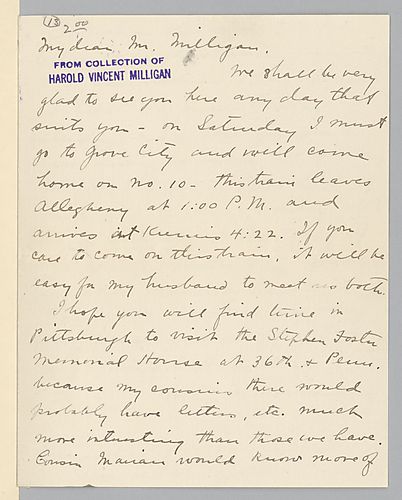 (13)
2.00
My dear Mr. Milligan,
FROM COLLECTION OF
HAROLD VINCENT MILLIGAN
We shall be very
glad to see you here any day that
suits you - on Saturday I must
go to Grove City and will come
home on no. 10 - this train leaves
Allegheny at 1:00 P.M. and
arrives at 4:22. If you
care to come on this train, it will be
easy for my husband to meet us both.
I hope you will find time in
Pittsburgh to visit the Stephen Foster
Memorial House at 36th. & Penn.
because my cousins there would
probably have letters, etc. much
more interesting than those we have.
Cousin Marian would know more of